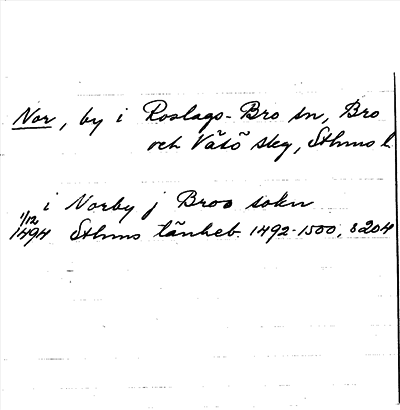 Nor, by i Roslags-Bro sn, Bro
och Vätö skg, Sthms l.
i Norby j Broo sokn
1/12 1494 Sthms tänkeb. 1492-1500, s 204